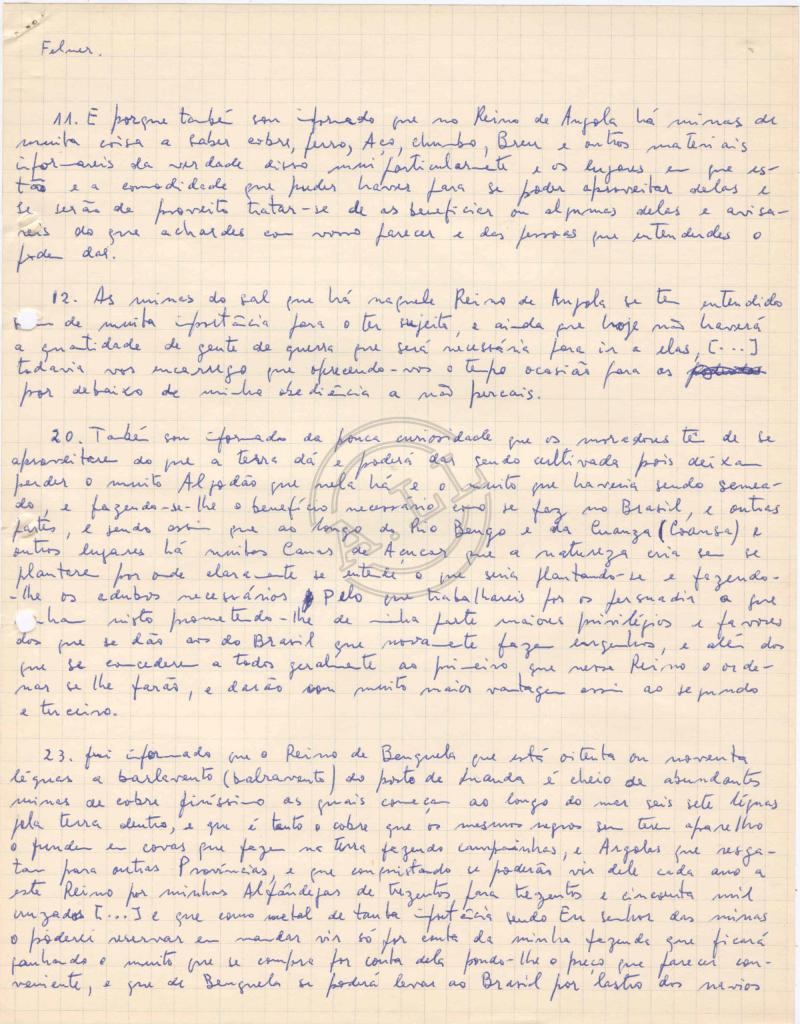 Felner.
11. E porque também sou informado que no Reino de Angola há minas de
muita coisa a saber cobre, ferro, Aço, chumbo, Breu e outros materiais
informareis da verdade disso mui particularmente e os lugares em que es-
tão e a comodidade que puder haver para se poder aproveitar delas e
se serão de proveito tratar-se de as beneficiar ou algumas delas e avisa-
reis do que achardes com vosso parecer e das pessoas que entenderdes o
podem dar.
12. As minas do sal que há naquele Reino de Angola se tem entendido
de muita importância para o ter sujeito, e ainda que hoje não haverá
a quantidade de gente de guerra que será necessária para ir a elas, [...]
todavia vos encarrego que oferecendo-vos o tempo ocasião para as
por debaixo de minha obediência a não percais.
20. Também sou informado da pouca curiosidade que os moradores têm de se
aproveitarem do que a terra dá e poderá dar sendo cultivada pois deixam
perder o muito Algodão que nela há e o muito que haveria sendo semea-
do, e fazendo-se-lhe o benefício necessário como se faz no Brasil, e outras
partes, e sendo assim que ao longo do Rio Bengo e da Cuanza (Coansa) e
outros lugares há muitas Canas de Açucar que a natureza cria sem se
plantarem por onde claramente se entende o que seria plantando-se e fazendo-
-lhe os adubos necessários Pelo que trabalhareis por os persuadir a que
venham nisto prometendo-lhe de minha parte maiores privilégios e favores
dos que se dão aos do Brasil que novamente fazem engenhos, e além dos
que se concederem a todos geralmente ao primeiro que nesse Reino o orde-
nar se lhe farão, e darão com muito maior vantagem assim ao segundo
e terceiro.
23. fui informado que o Reino de Benguela que está oitenta ou noventa
léguas a barlavento (balravento) do porto de Luanda é cheio de abundantes
minas de cobre finíssimo as quais começam ao longo do mar seis sete léguas
pela terra dentro, e que é tanto o cobre que os mesmos negros sem terem aparelho
o fundem em covas que fazem na terra fazendo campainhas, e Argolas que resga-
tam para outras Províncias, e que conquistando se poderão vir dele cada ano a
este Reino por minhas Alfândegas de trezentos para trezentos e cincoenta mil
cruzados [...] e que como metal de tanta importância sendo Eu senhor das minas
o poderei reservar em mandar vir só por conta da minha fazenda que ficará
ganhando o muito que se compra por conta dela pondo-lhe o preço que parecer con-
veniente, e que de Benguela se poderá levar ao Brasil por lastro dos navios